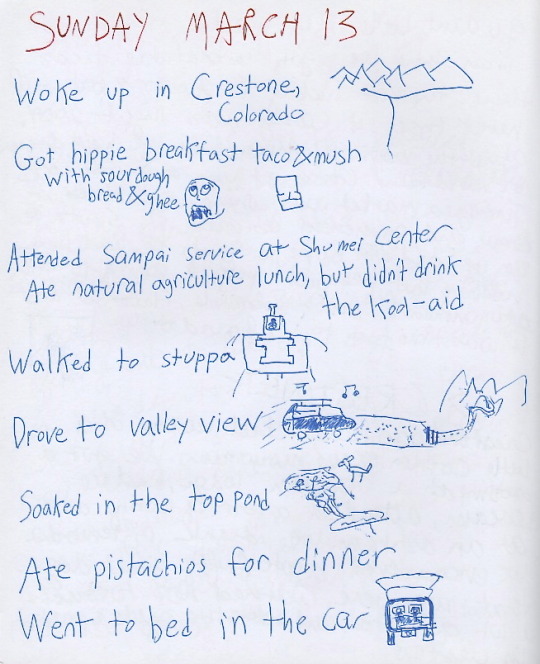 SUNDAY MARCH 13
Woke up in Crestone,
Colorado
Got hippie breakfast taco & mush
with sourdough
bread & ghee
Attended Sampai service at Shumei Center
Ate natural agriculture lunch, but didn't drink
the Kool-aid
Walked to stuppa
Drove to valley view
Soaked in the top pond
Ate pistachios for dinner
Went to bed in the car